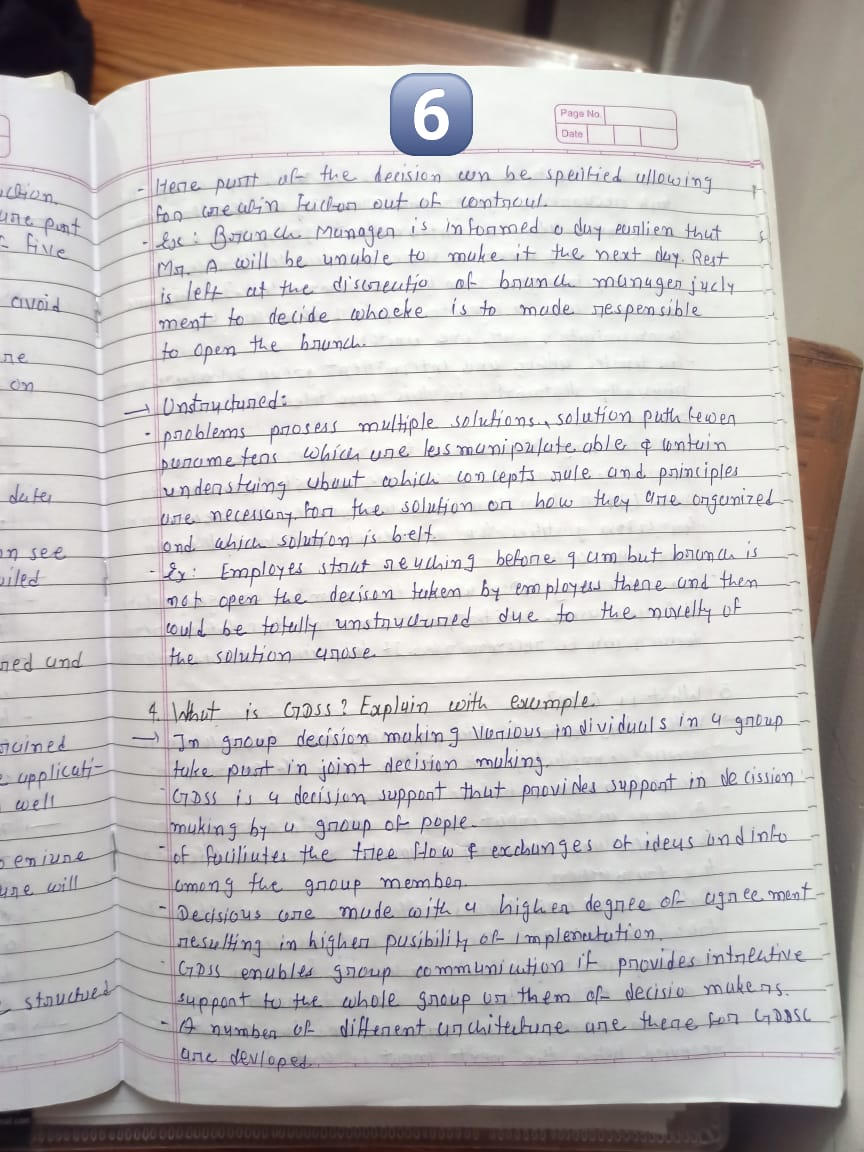 6
Page No.
Date
ction.
are part
five
avoid
re
on
date
on see
oiled
ned and
rained
e applicati-
well
eriune
are will
structued
- Here part of the decision can be speified allowing
for creatin out of controul.
- Ex : Branch Manager is informed a day earlier that
Mr. A will be unable to make it the next day. Rest
is left at the discreutio of branch manager jucly
ment to decide whoeke is to made respensible
to open the branch.
→ Unstructured:
- problems prosess multiple solutions, solution path fewer
parameters which are less manipulate able & contain
understying about which concepts rule and principles
are necessary for the solution or how they are organized
and which solution is belt.
- Ex: Employes strat reaching before 9 am but branch is
not open the decison taken by employess there and then
could be totally unstructured due to the novelty of
the solution arose.
4. What is GDSS? Explain with example.
→ In group decision making various individuals in a group
take part in joint decision making.
- GDSS is a decision support that provides support in decission
making by a group of pople.
- of faciliates the free flow & exchanges of ideas and info
among the group member.
- Decisious are made with a higher degree of agreement
resulting in higher pusibility of implenatution.
- GDSS enables group communication it provides intreative
support to the whole group or them of decisio makers.
- A number of different architeture are there for GDDSC
are devloped.